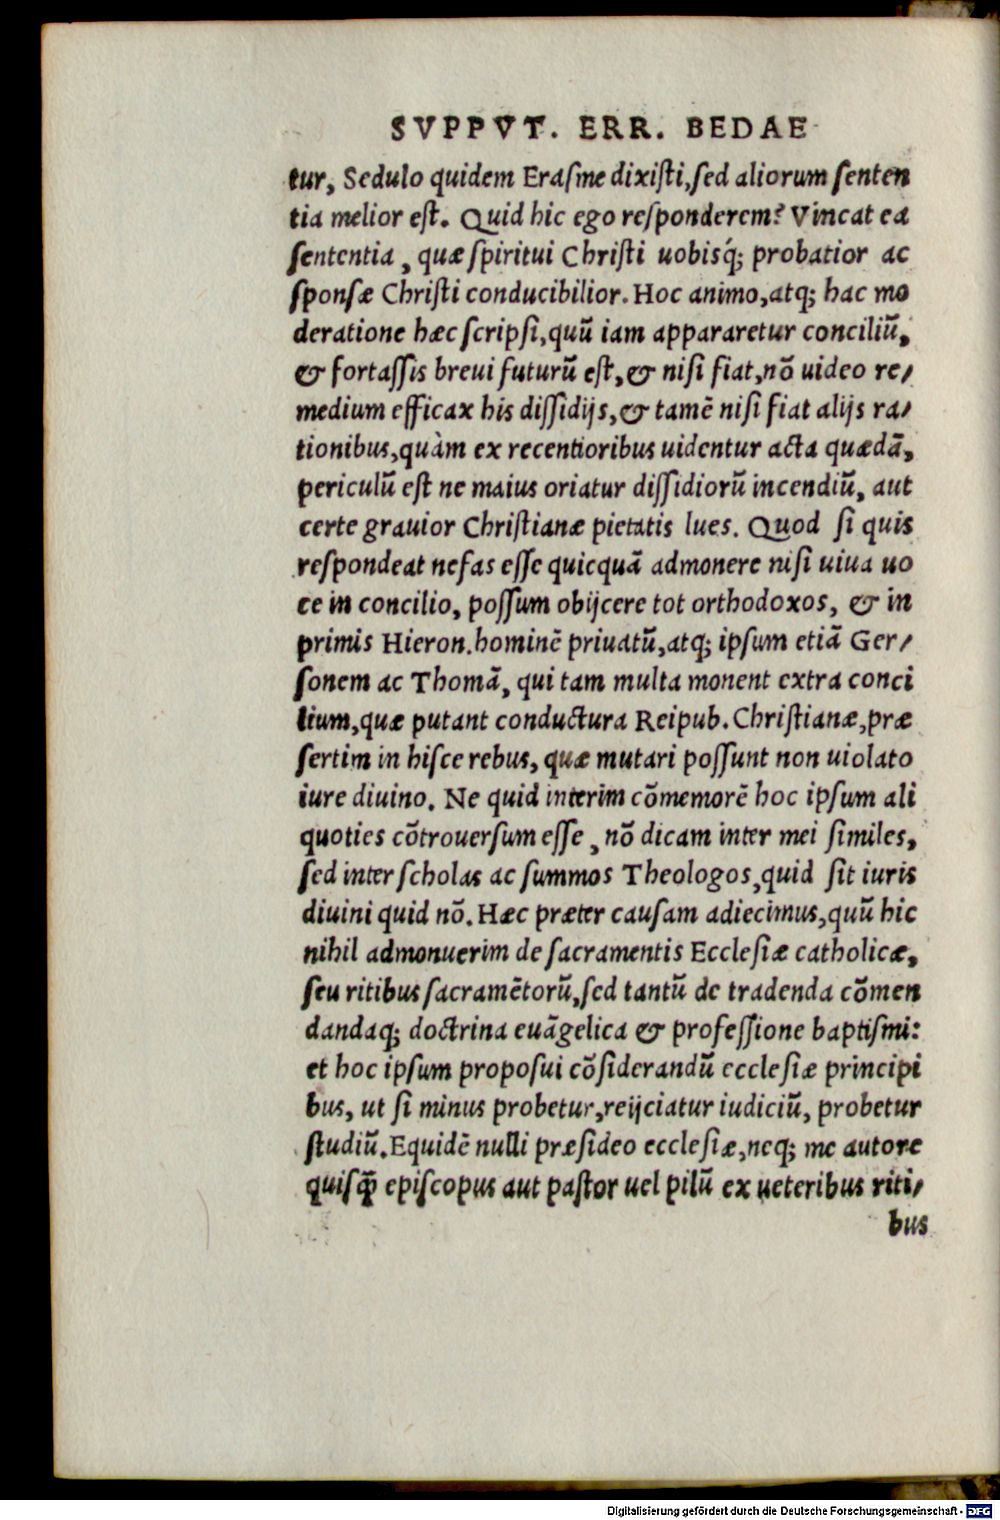 SVPPVT. ERR. BEDAE
tur, Sedulo quidem Erasme dixisti, sed aliorum senten
tia melior est. Quid hic ego responderem? Vincat ea
sententia, quæ spiritui Christi uobisq́; probatior ac
sponsæ Christi conducibilior. Hoc animo, atq; hac mo
deratione hæc scripsi, quũ iam appararetur conciliũ,
& fortassis breui futurũ est, & nisi fiat, nõ uideo re/
medium efficax his dissidijs, & tamẽ nisi fiat alijs ra/
tionibus, quàm ex recentioribus uidentur acta quædã,
periculũ est ne maius oriatur dissidiorũ incendiũ, aut
certe grauior Christianæ pietatis lues. Quod si quis
respondeat nefas esse quicquã admonere nisi uiua uo
ce in concilio, possum obijcere tot orthodoxos, & in
primis Hieron. hominẽ priuatũ, atq; ipsum etiã Ger/
sonem ac Thomã, qui tam multa monent extra conci
lium, quæ putant conductura Reipub. Christianæ, præ
sertim in hisce rebus, quæ mutari possunt non uiolato
iure diuino. Ne quid interim cõmemorẽ hoc ipsum ali
quoties cõtrouersum esse, nõ dicam inter mei similes,
sed inter scholas ac summos Theologos, quid sit iuris
diuini quid nõ. Hæc præter causam adiecimus, quũ hic
nihil admonuerim de sacramentis Ecclesiæ catholicæ,
seu ritibus sacramẽtorũ, sed tantũ de tradenda cõmen
dandaq; doctrina euãgelica & professione baptismi:
et hoc ipsum proposui cõsiderandũ ecclesiæ principi
bus, ut si minus probetur, reijciatur iudiciũ, probetur
studiũ. Equidẽ nulli præsideo ecclesiæ, neq; me autore
quisꝗ̃ episcopus aut pastor uel pilũ ex ueteribus riti/
bus
Digitalisierung gefördert durch die Deutsche Forschungsgemeinschaft - DFG